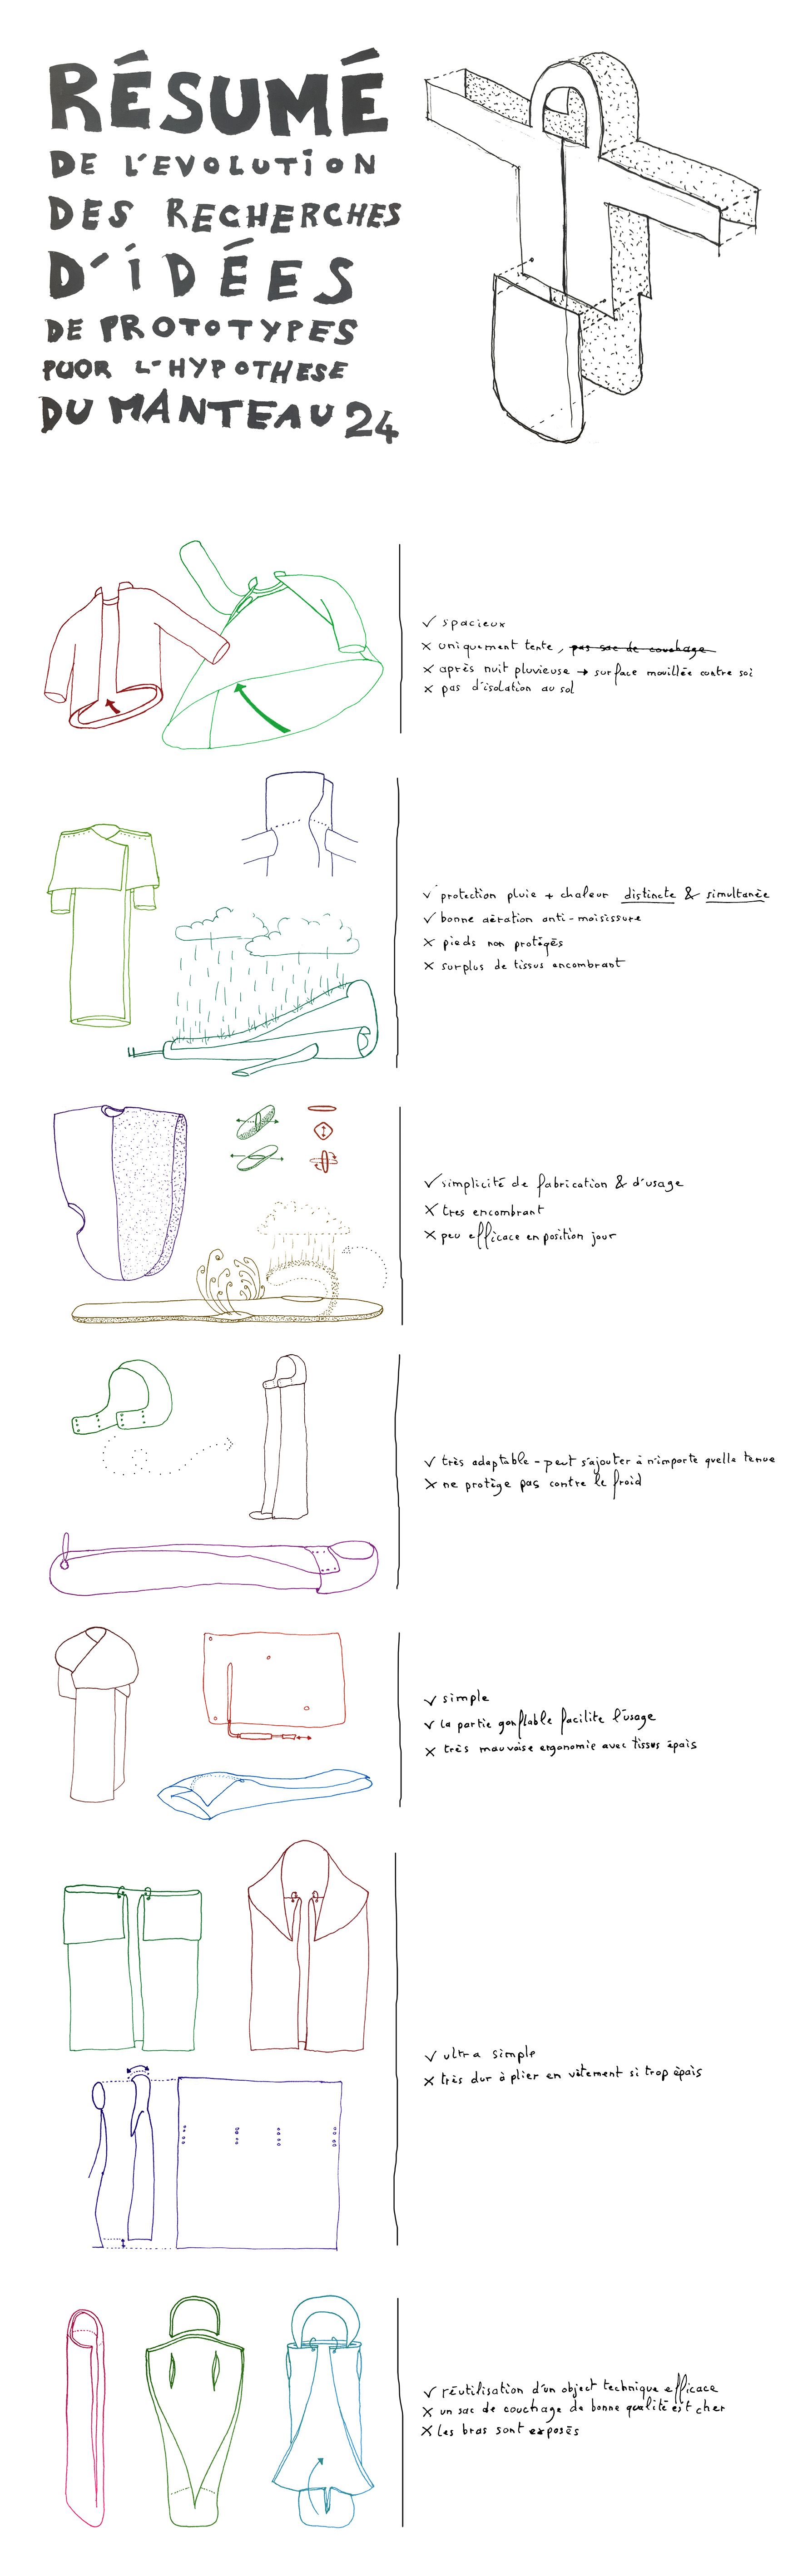 RÉSUMÉ
DE L'EVOLUTION
DES RECHERCHES
D'IDÉES
DE PROTOTYPES
PUOR L'HYPOTHESE
DU MANTEAU 24
✓ spacieux
✗ uniquement tente, pas sac de couchage
✗ après nuit pluvieuse → surface mouillée contre soi
✗ pas d'isolation au sol
✓ protection pluie + chaleur distincte & simultanée
✓ bonne aération anti-moisissure
✗ pieds non protégés
✗ surplus de tissus encombrant
✓ simplicité de fabrication & d'usage
✗ tres encombrant
✗ peu efficace en position jour
✓ très adaptable - peut s'ajouter à n'importe quelle tenue
✗ ne protège pas contre le froid
✓ simple
✓ la partie gonflable facilite l'usage
✗ très mauvaise ergonomie avec tissus épais
✓ ultra simple
✗ très dur à plier en vêtement si trop épais
✓ réutilisation d'un object technique efficace
✗ un sac de couchage de bonne qualité est cher
✗ les bras sont exposés